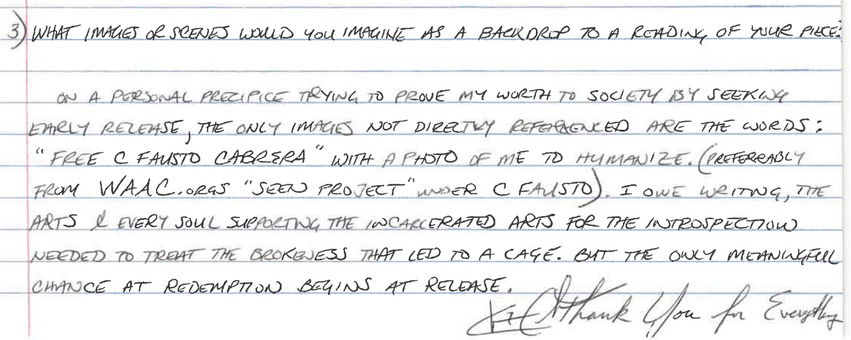 3) WHAT IMAGES OR SCENES WOULD YOU IMAGINE AS A BACKDROP TO A READING OF YOUR PIECE?
ON A PERSONAL PRECIPICE TRYING TO PROVE MY WORTH TO SOCIETY BY SEEKING
EARLY RELEASE, THE ONLY IMAGES NOT DIRECTLY REFERENCED ARE THE WORDS:
"FREE C FAUSTO CABRERA" WITH A PHOTO OF ME TO HUMANIZE. (PREFERRABLY
FROM WAAC.ORGS "SEEN PROJECT" UNDER C FAUSTO). I OWE WRITNG, THE
ARTS & EVERY SOUL SUPPORTNG THE INCARCERATED ARTS FOR THE INTROSPECTION
NEEDED TO TREAT THE BROKENESS THAT LED TO A CAGE. BUT THE ONLY MEANINGFULL
CHANCE AT REDEMPTION BEGINS AT RELEASE.
Thank You for Everything